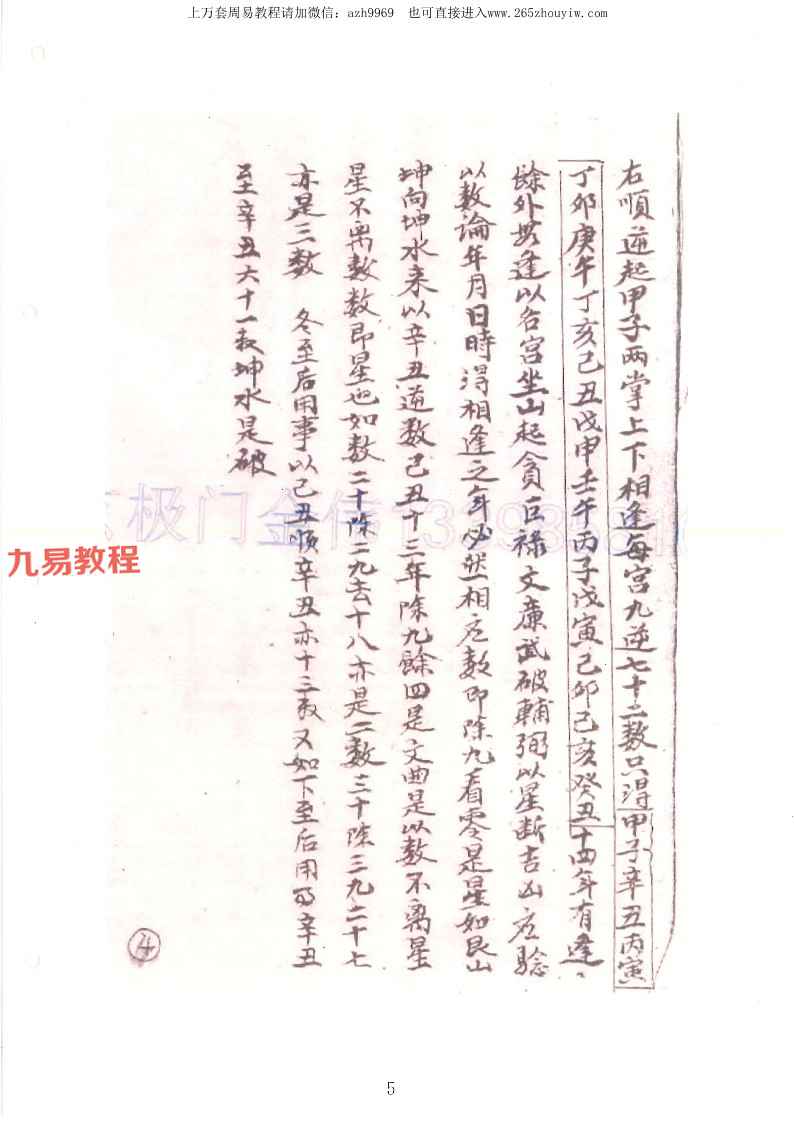 上万套周易教程请加微信：azh9969　也可直接进入www.265zhouyiw.com
右順逆起甲子两掌上下相逢每宫九逆七十二数只得甲子辛丑丙寅
丁卯庚午丁亥己丑戊申壬午丙子戊寅己卯己亥癸丑十四年有逢
餘外无逢以各宫坐山起貪巨禄文廉武破輔弼以星断吉凶应驗
以数論年月日時得相逢之年必然相应数即除九看零是星如艮山
坤向坤水来以辛丑逆数己丑十三年除九餘四是文曲是以数不离星
星不离数数即星也如数二十除二九去十八亦是二数三十除三九二十七
亦是三数 冬至后用事以己丑順辛丑亦十三数又如下至后用辛丑
至辛丑六十一数坤水是破
极门金信
九易教程
4
5